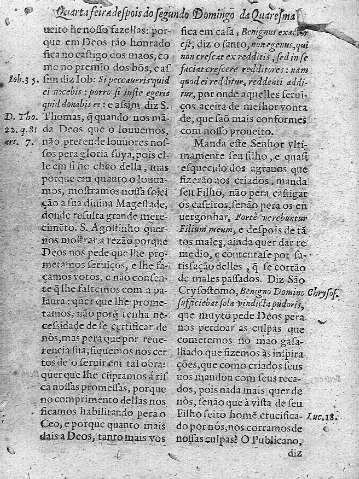 Quarta feira despois do segundo Domingo da Quaresma
ueito he nosso fazellas: por-
que em Deos tão honrado
fica no castigo dos maos, co-
mo no premio dos bõs, e as-
sim diz Iob: Si peccaueris quid
ei nocebis: porro si juste egeris
quid donabis ei: e assim diz S.
Thomas, q̃ quando nos mã-
da Deos que o louuemos,
não pretende louuores nos-
sos pera gloria sua, pois el-
le em si he cheo della, mas
porque em quanto o louua-
mos, mostramos nossa sojei-
ção a sua diuina Magestade,
donde resulta grande mere-
cimẽto. S. Agostinho quer-
nos mostrar a rezão porque
Deos nos pede que lhe pro-
metamos seruiços, e lhe fa-
çamos votos, e não consen-
te q̃ lhe faltemos com a pa-
laura: quer que lhe prome-
tamos, não porq̃ tenha ne-
cessidade de se certificar de
nòs, mas pera que por reue-
rencia sua, siguemos nos cer-
tos de o seruir em tal obra:
quer que lhe cũpramos á ris-
ca nossas promessas, porque
no comprimento dellas nos
ficamos habilitando pera o
Ceo, e porque quanto mais
dais a Deos, tanto mais vos
Iob. 35.
D. Tho.
22. q. 81
art. 7.
fica em casa, Benignus exactor
est, diz o santo, non egenus, qui
non crescat ex redditis, sed in se
faciat crescere redditores: nam
quod ei redditur, reddenti addi-
tur, por onde aquelles serui-
ços aceita de melhor vonta-
de, que saõ mais conformes
com nosso proueito.
Manda este Senhor vlti-
mamente seu filho, e quasi
esquecido dos agrauos que
fizerão aos criados, manda
seu Filho, não pera castigar
os caseiros, senão pera os en-
uergonhar, Forte verebuntur
Filium meum, e despois de tã-
tos males, ainda quer dar re-
medio, e contentase por sa-
tisfação delles, q̃ se corrão
de males passados. Diz São
Crysostomo, Benigno Domino
sufficiebat sola vindicta pudoris,
que muyto pede Deos pera
nos perdoar as culpas que
cometemos no mao gasa-
lhado que fizemos às inspira-
ções, que como criados seus
nos mandou com seus reca-
dos, pois nada mais quer de
nòs, senão que à vista de seu
Filho feito home crucifica-
do por nòs, nos corramos de
nossas culpas? O Publicano,
Chrysos.
Luc. 18.
diz